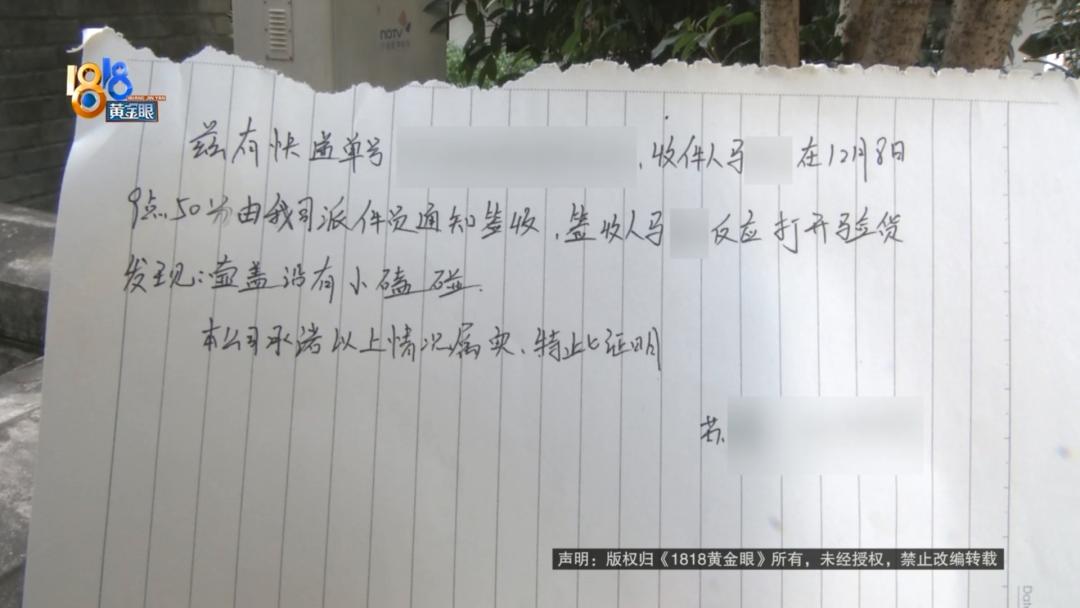 1818
HUANG JIN YAN
黄金眼
兹有快递单号 ,收件人马 在12月8日
9点50分由我司派件员通知签收,签收人马 反应打开验货
发现:壶盖没有小磕碰.
本公司承诺以上情况属实,特此证明
声明:版权归《1818黄金眼》所有,未经授权,禁止改编转载